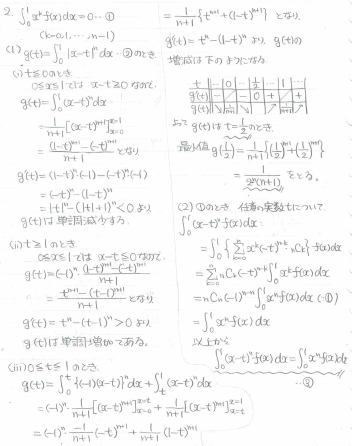 2. ∫₀¹ xᵏf(x)dx=0 … ①
(k=0,1, …, n-1)
(1) g(t)=∫₀¹ |x-t|ⁿ dx … ② のとき
(i) t≦0のとき
0≦x≦1では x-t≧0 なので、
g(t)=∫₀¹ (x-t)ⁿ dx
= 1/(n+1) [(x-t)ⁿ⁺¹]ₓ₌₀ˣ⁼¹
= {(1-t)ⁿ⁺¹-(-t)ⁿ⁺¹}/(n+1) となり
g'(t)= (1-t)ⁿ·(-1)-(-t)ⁿ·(-1)
= (-t)ⁿ-(1-t)ⁿ
= |t|ⁿ-(|t|+1)ⁿ<0 より
g(t)は単調減少する。
(ii) t≧1のとき
0≦x≦1では x-t≦0 なので、
g(t)=(-1)ⁿ· {(1-t)ⁿ⁺¹-(-t)ⁿ⁺¹}/(n+1)
= {tⁿ⁺¹-(t-1)ⁿ⁺¹}/(n+1) となり
g'(t)= tⁿ-(t-1)ⁿ>0 より
g(t)は単調増加である。
(iii) 0≦t≦1のとき
g(t)=∫₀ᵗ {(-1)(x-t)}ⁿ dx+∫ₜ¹ (x-t)ⁿ dx
=(-1)ⁿ· 1/(n+1) [(x-t)ⁿ⁺¹]ₓ₌₀ˣ⁼ᵗ + 1/(n+1) [(x-t)ⁿ⁺¹]ₓ₌ₜˣ⁼¹
=(-1)ⁿ· -1/(n+1) (-t)ⁿ⁺¹+ 1/(n+1) (1-t)ⁿ⁺¹
= 1/(n+1) {tⁿ⁺¹+(1-t)ⁿ⁺¹} となり、
g'(t)= tⁿ-(1-t)ⁿ より g(t)の
増減は下のようになる
t … 0 … 1/2 … 1 …
g'(t) - - 0 + +
g(t) ↘ ↘ ↗ ↗
よって g(t)は t=1/2のとき、
最小値 g(1/2)= 1/(n+1) {(1/2)ⁿ⁺¹+(1/2)ⁿ⁺¹}
= 1/{2ⁿ(n+1)} をとる。
(2) ①のとき 任意の実数tについて
∫₀¹ (x-t)ⁿ f(x)dx
=∫₀¹ {Σₖ₌₀ⁿ xᵏ(-t)ⁿ⁻ᵏ ₙCₖ} f(x)dx
=Σₖ₌₀ⁿ ₙCₖ(-t)ⁿ⁻ᵏ∫₀¹ xᵏf(x)dx
=ₙCₙ(-t)ⁿ⁻ⁿ∫₀¹ xⁿf(x)dx (∵①)
=∫₀¹ xⁿf(x)dx
以上から
∫₀¹ (x-t)ⁿ f(x)dx=∫₀¹ xⁿf(x)dx
… ③